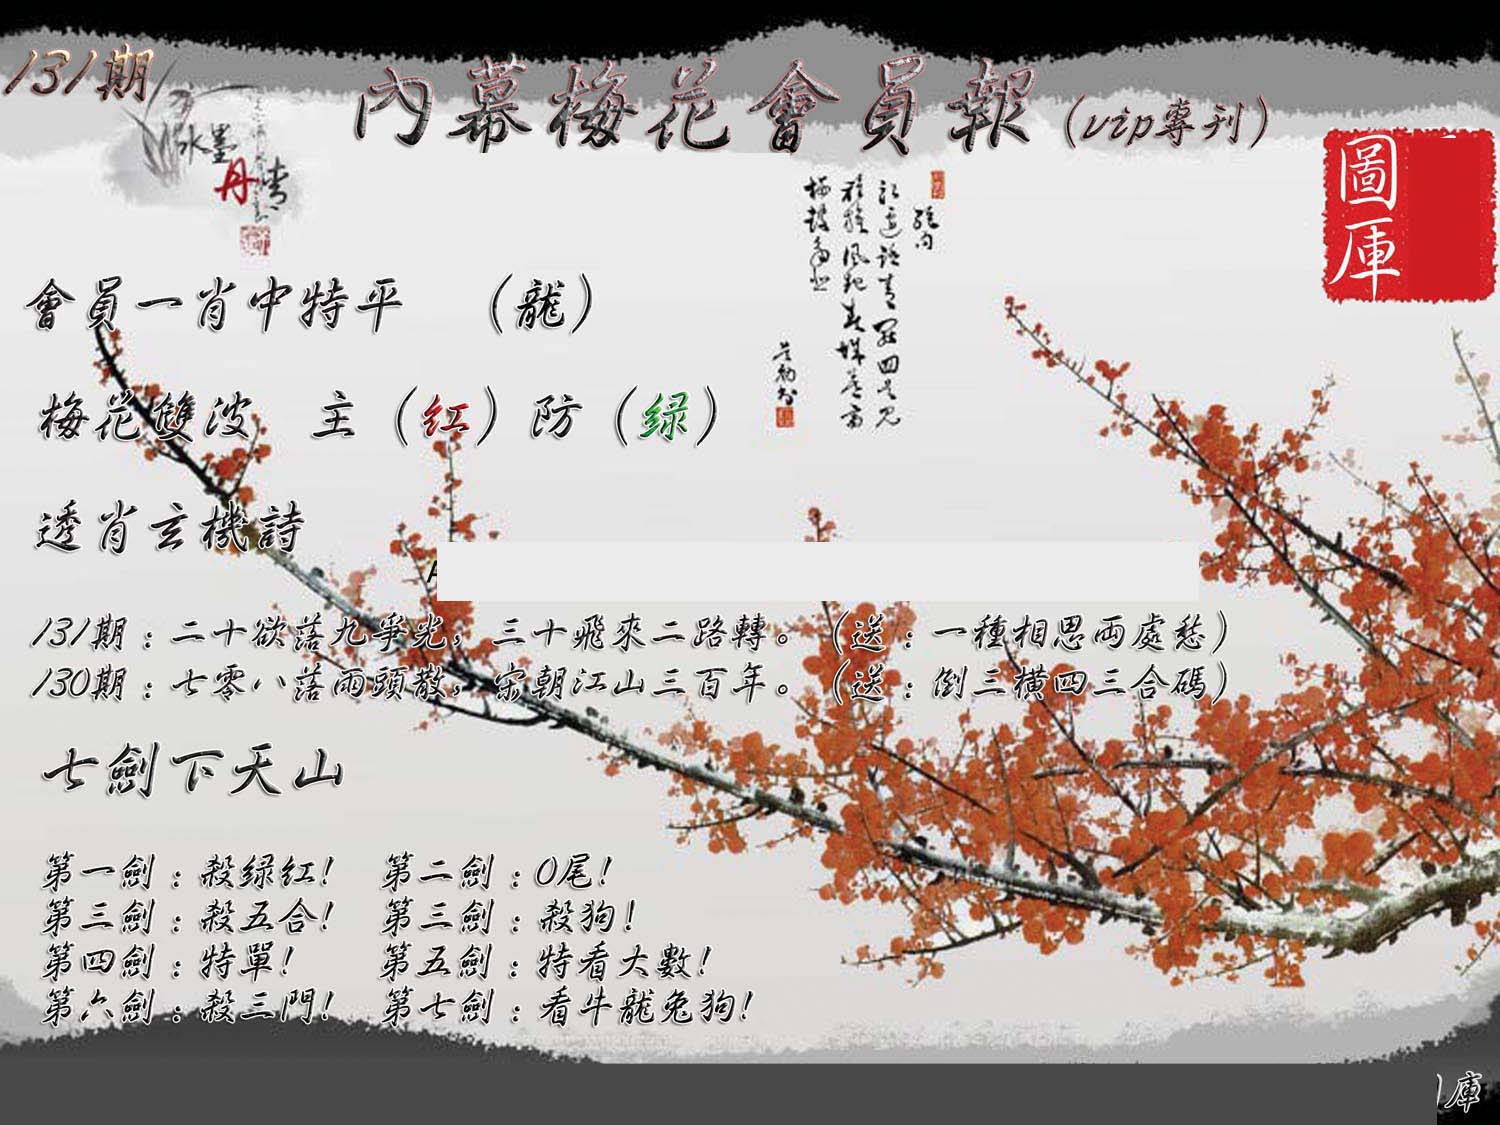 131期
內幕梅花會員報（vip專刊）
水墨
丹青
圖庫
會員一肖中特平　（龍）
梅花雙波　主（红）防（绿）
透肖玄機詩
131期：二十欲落九爭光，三十飛來二路轉。（送：一種相思兩處愁）
130期：七零八落兩頭散，宗朝江山三百年。（送：倒三橫四三合碼）
七劍下天山
第一劍：殺绿红！　第二劍：0尾！
第三劍：殺五合！　第三劍：殺狗！
第四劍：特單！　第五劍：特看大數！
第六劍：殺三門！　第七劍：看牛龍兔狗！
庫